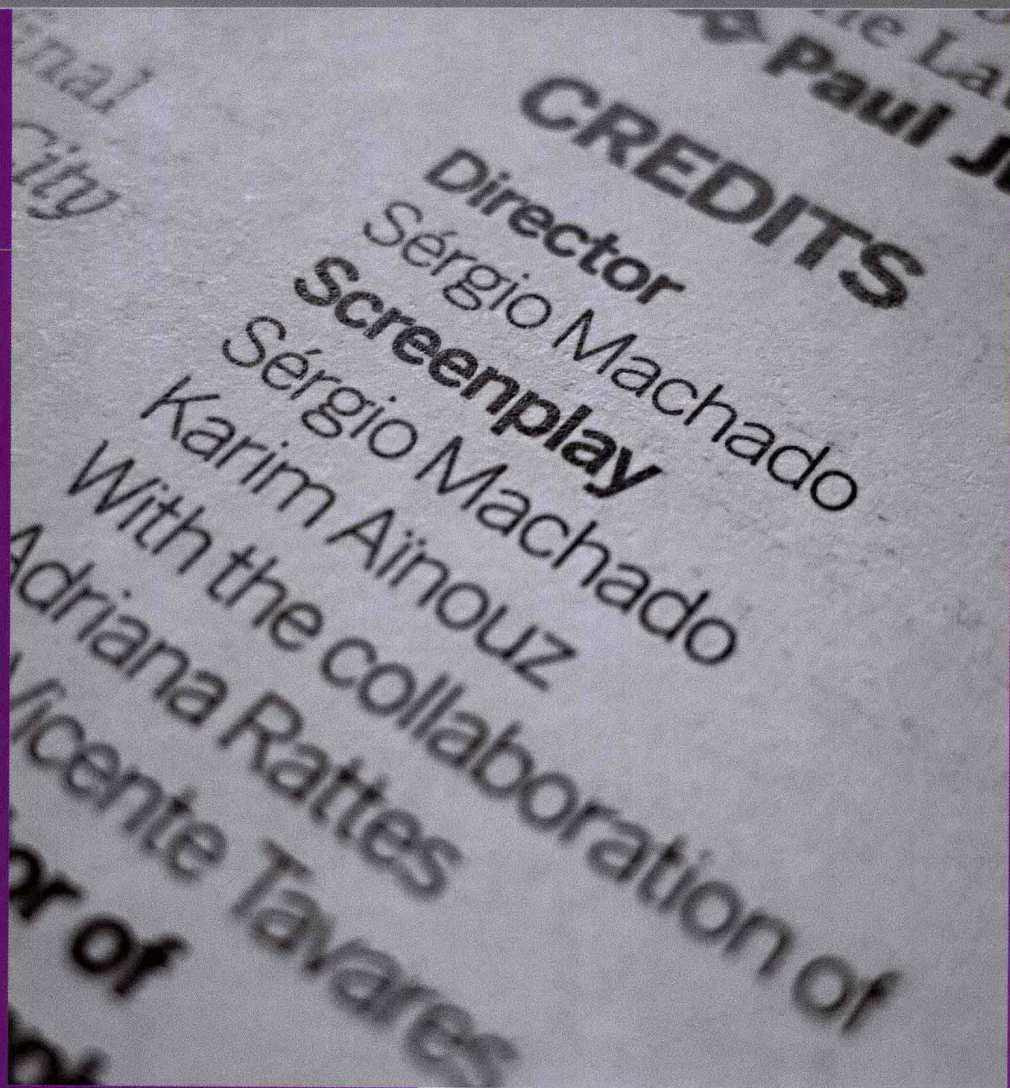 inal
City
he La
Paul J
CREDITS
Director
Sérgio Machado
Screenplay
Sérgio Machado
Karim Aïnouz
With the collaboration of
Adriana Rattes
Vicente Tavares
or of